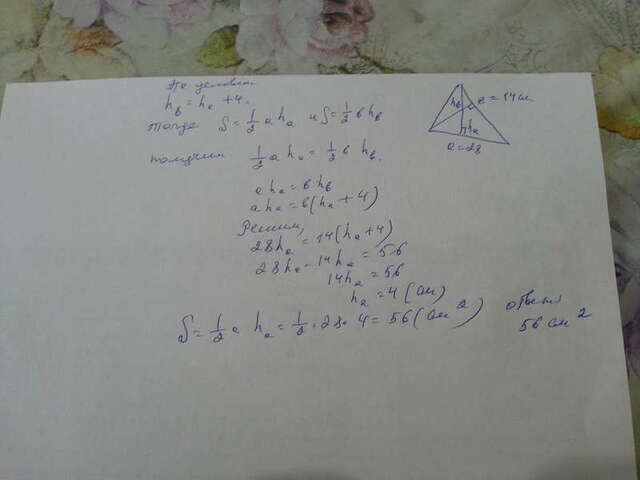 По условию
h_b = h_a + 4.
Тогда S = 1/2 a h_a и S = 1/2 b h_b
получим 1/2 a h_a = 1/2 b h_b.
a h_a = b h_b
a h_a = b(h_a + 4)
Решим,
28h_a = 14(h_a + 4)
28h_a - 14h_a = 56
14h_a = 56
h_a = 4 (см)
S = 1/2 a h_a = 1/2 · 28 · 4 = 56 (см²)
ответ
56 см²
h_b
в = 14 см
h_a
a = 28